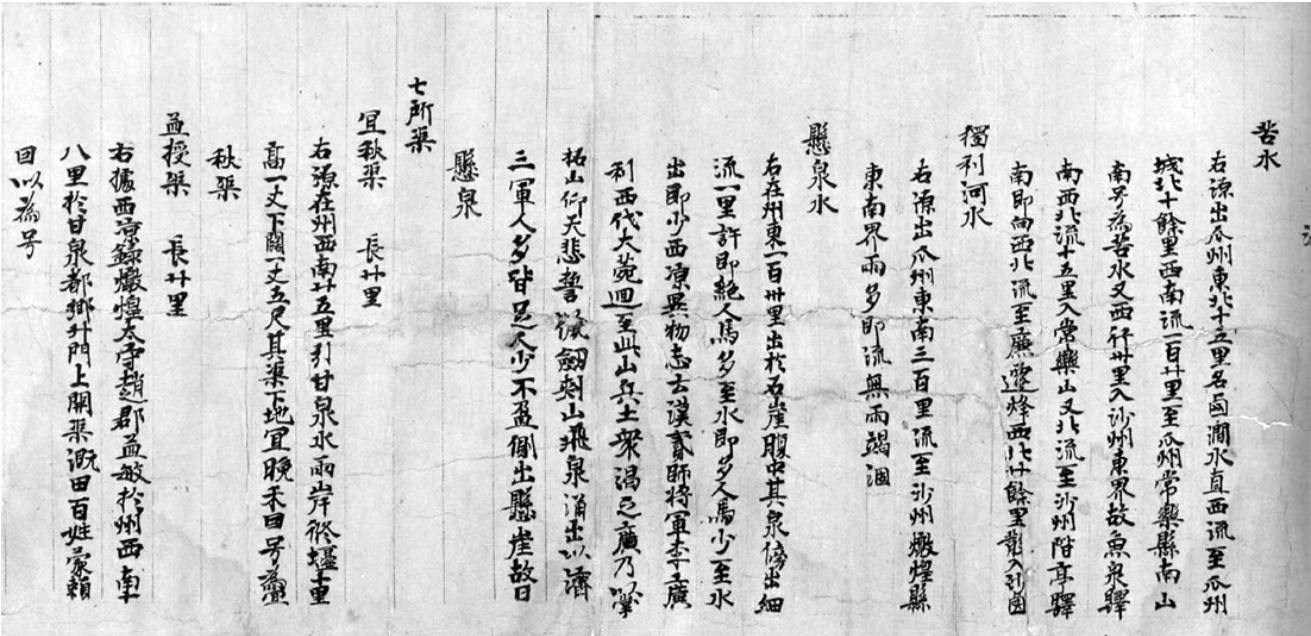 苦水
右源出瓜州東北十五里名鹵澗水直西流至瓜州
城北十餘里西南流一百廿里至瓜州常樂縣南山
南号為苦水又西行卅里入沙州東界故魚泉驛
南西北流十五里入常樂山又北流至沙州階亭驛
南即向西北流至廉遷烽西北廿餘里散入沙鹵
獨利河水
右源出瓜州東南三百里流至沙州燉煌縣
東南界雨多即流無雨竭涸
懸泉水
右在州東一百卅里出於石崖腹中其泉傍出細
流一里許即絕人馬多至水即多人馬少至水
出即少西涼異物志云漢貳師將軍李廣
利西伐大菀迴至此山兵士眾渴乏廣乃以掌
拓山仰天悲誓以佩劔刾山飛泉涌出以濟
三軍人多皆足人少不盈側出懸崖故曰
懸泉
七所渠
宜秋渠 長廿里
右源在州西南廿五里引甘泉水兩岸修堰十里
高一丈下闊一丈五尺其渠下地宜晚禾因号為宜
秋渠
孟授渠 長廿里
右據西涼錄燉煌太守趙郡孟敏於州西南十
八里於甘泉都鄉斗門上開渠溉田百姓蒙賴
因以為号